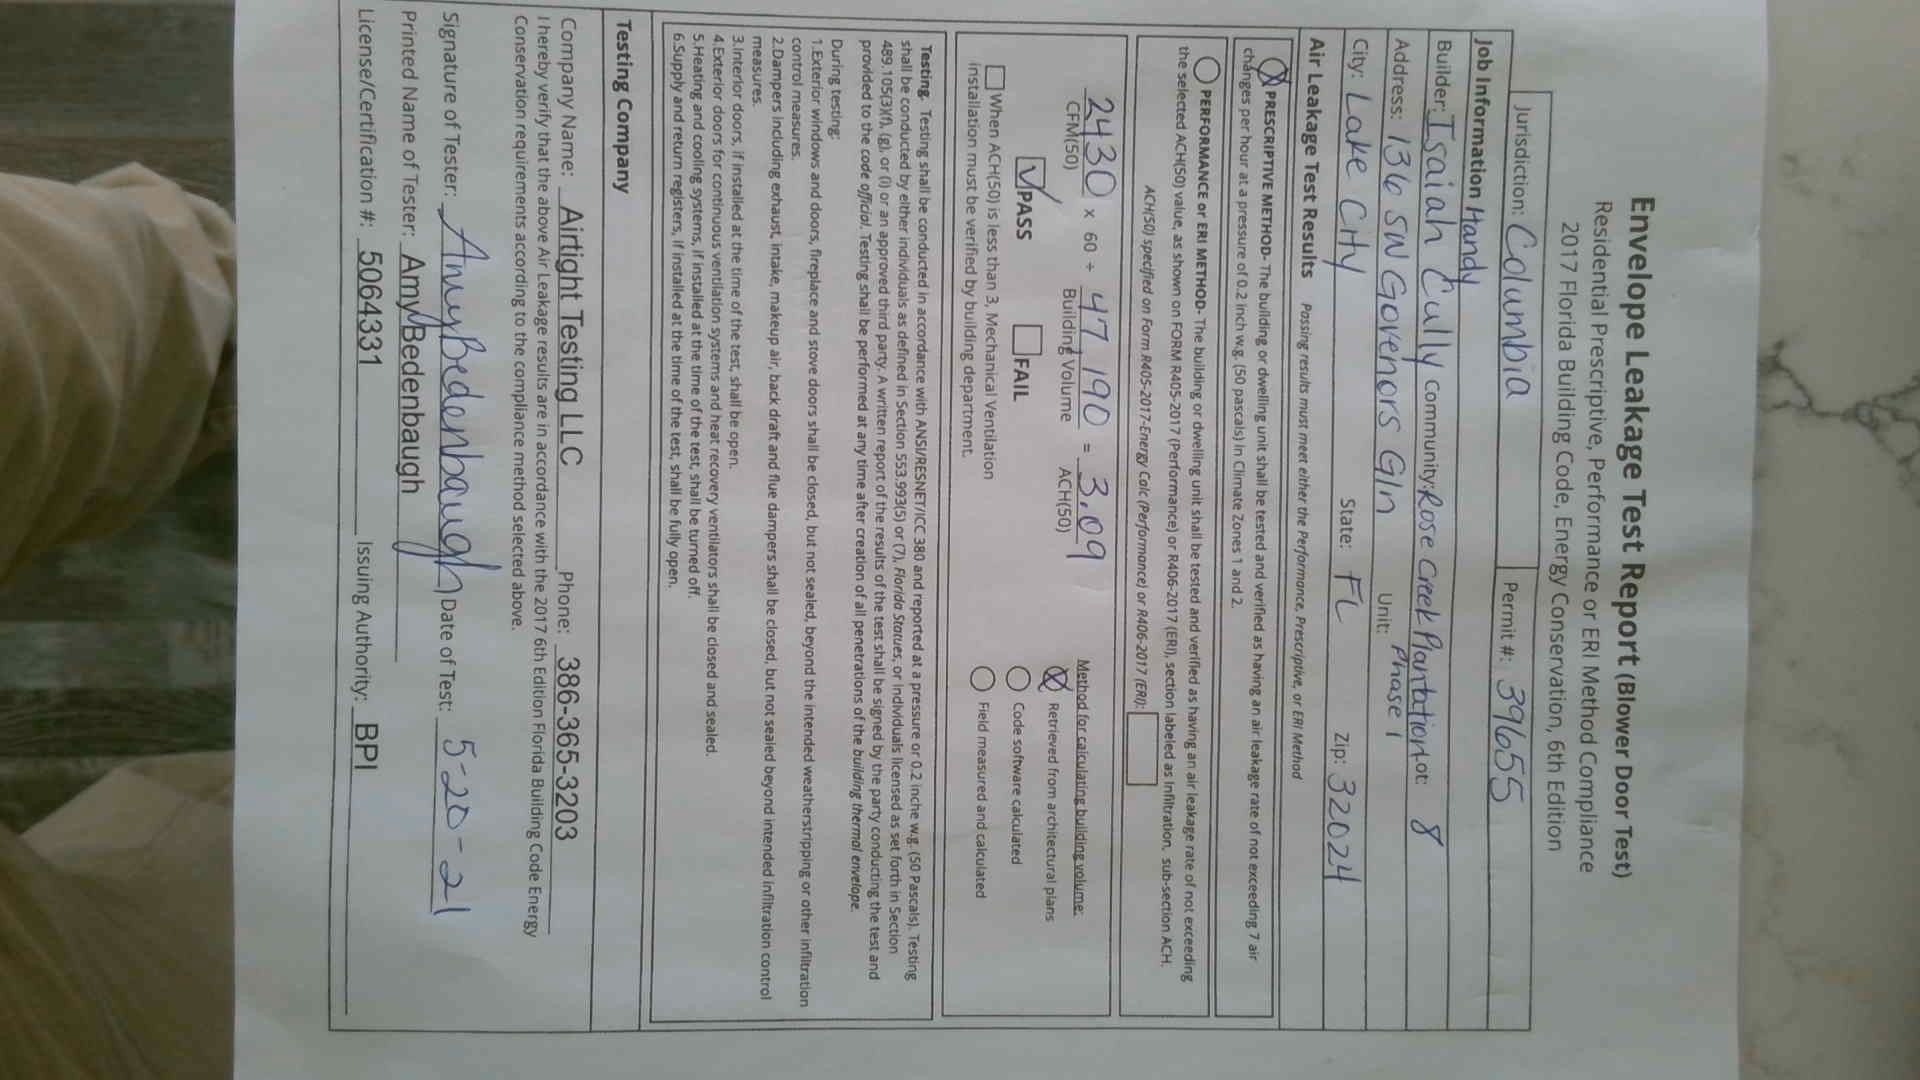 Envelope Leakage Test Report (Blower Door Test)
Residential Prescriptive, Performance or ERI Method Compliance
2017 Florida Building Code, Energy Conservation, 6th Edition
Jurisdiction: Columbia Permit #: 39655
Job Information
Builder: Isaiah Cully Handy Community: Rose Creek Plantation Lot: 8
Phase 1
Address: 136 SW Governors Gln Unit:
City: Lake City State: FL Zip: 32024
Air Leakage Test Results Passing results must meet either the Performance, Prescriptive, or ERI Method
X PRESCRIPTIVE METHOD- The building or dwelling unit shall be tested and verified as having an air leakage rate of not exceeding 7 air
changes per hour at a pressure of 0.2 inch w.g. (50 pascals) in Climate Zones 1 and 2.
PERFORMANCE or ERI METHOD- The building or dwelling unit shall be tested and verified as having an air leakage rate of not exceeding
the selected ACH(50) value, as shown on FORM R405-2017 (Performance) or R406-2017 (ERI), section labeled as Infiltration, sub-section ACH.
ACH(50) specified on Form R405-2017-Energy Calc (Performance) or R406-2017 (ERI):
2430 x 60 ÷ 47,190 = 3.09
CFM(50) Building Volume ACH(50)
PASS FAIL
When ACH(50) is less than 3, Mechanical Ventilation
installation must be verified by building department.
Method for calculating building volume:
X Retrieved from architectural plans
Code software calculated
Field measured and calculated
Testing. Testing shall be conducted in accordance with ANSI/RESNET/ICC 380 and reported at a pressure or 0.2 inche w.g. (50 Pascals). Testing
shall be conducted by either individuals as defined in Section 553.993(5) or (7), Florida Statues, or individuals licensed as set forth in Section
489.105(3)(f), (g), or (i) or an approved third party. A written report of the results of the test shall be signed by the party conducting the test and
provided to the code official. Testing shall be performed at any time after creation of all penetrations of the building thermal envelope.
During testing:
1.Exterior windows and doors, fireplace and stove doors shall be closed, but not sealed, beyond the intended weatherstripping or other infiltration
control measures.
2.Dampers including exhaust, intake, makeup air, back draft and flue dampers shall be closed, but not sealed beyond intended infiltration control
measures.
3.Interior doors, if installed at the time of the test, shall be open.
4.Exterior doors for continuous ventilation systems and heat recovery ventilators shall be closed and sealed.
5.Heating and cooling systems, if installed at the time of the test, shall be turned off.
6.Supply and return registers, if installed at the time of the test, shall be fully open.
Testing Company
Company Name: Airtight Testing LLC Phone: 386-365-3203
I hereby verify that the above Air Leakage results are in accordance with the 2017 6th Edition Florida Building Code Energy
Conservation requirements according to the compliance method selected above.
Signature of Tester: Amy Bedenbaugh Date of Test: 5-20-21
Printed Name of Tester: Amy Bedenbaugh
License/Certification #: 5064331 Issuing Authority: BPI